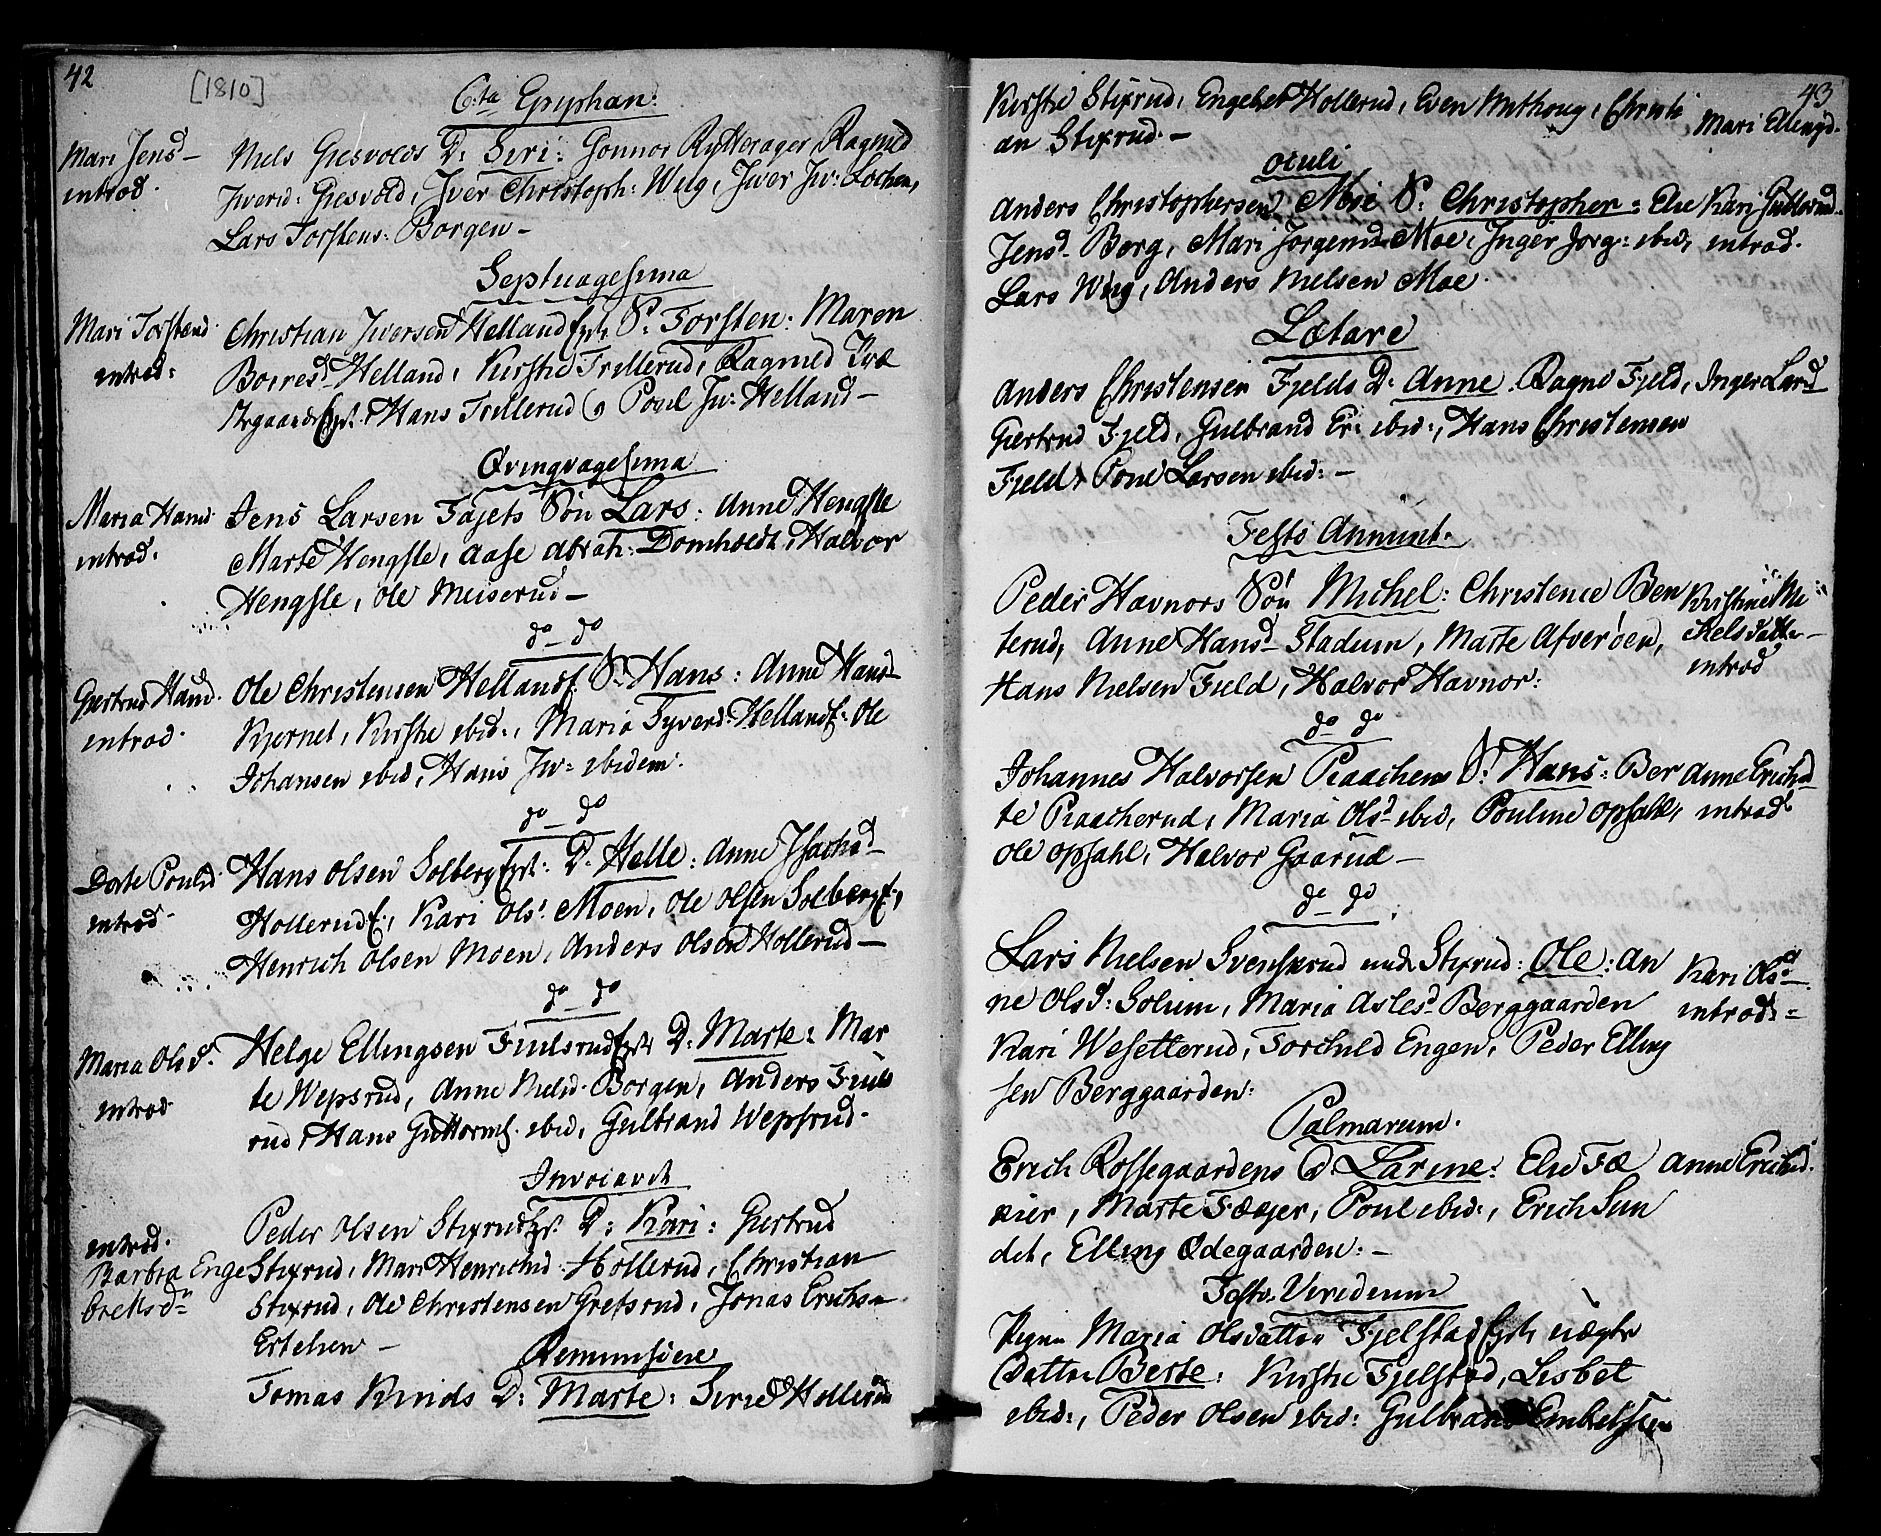 42
[1810]
6:ta Epiphan:
Mari Jensd-
introd.
Niels Giesvolds D: Siri: Gonnor Rytterager Ragnild
Iverd: Giesvold, Iver Christoph: Wiig, Iver Iv: Lochen,
Lars Torstens: Borgen-
Septuagesima
Mari Torstend.
introd:
Christian Iversen Helland Ejer S: Torsten: Maren
Boresd Helland, Kirstie Trillerud, Ragnild Træ
Hans Trillerud og Poul Iv: Helland-
Qvinqvagesima
Maria Hansd
introd.
Jens Larsen Fajets Søn Lars: Anne Hengsle
Marte Hengsle, Aase Abrah: Domholdt, Halvor
Hengsle, Ole Meiserud-
do-do
Giertrud Hansd.
introd.
Ole Christensen Hellandf. S: Hans: Anne Hansd
Kjernet, Kirstie ibid:, Maria Tyverd. Hellandf: Ole
Johansen ibid, Hans Iv: ibidem.
do-do
Dorte Poulsd.
introd-
Hans Olsen Solberg D: Helle: Anne Isachsd
Hollerud, Kari Ols: Moen, Ole Olsen Solberg,
Henrich Olsen Moen, Anders Olsen Hollerud-
do-do
Maria Olsd.
introd
Helge Ellingsen Fiulsrud D: Marte: Mar
te Wepsrud, Anne Nielsd. Borgen, Anders Fiuls
rud, Hans Guttorms. ibid, Gulbrand Wepsrud.
Invocavit
introd.
Barbra Enge
bretsd
Peder Olsen Stixrud D: Kari: Giertrud
Stixrud, Mari Henrichsd. Hollerud, Christian
Stixrud, Ole Christensen Gretsrud, Jonas Erichs-
Ertehen-
Reminiscere
Tomas Kinds D: Marte: Siri Hollerud
43
Kirstie Stixrud, Engebret Hollerud, Even Muthoug, Christi
an Stixrud.-
Mari Ellingd.
Oculi
Anders Christophersen Moe S: Christopher: Else
Kari Gulbrand
Jensd- Borg, Mari Jørgensd Moe, Inger Jørg: ibid,
introd.
Lars Wiig, Anders Nielsen Moe.
Lætare
Anders Christensen Fjelds D: Anne. Ragne Fjeld,
Inger Larsd
Giertrud Fjeld, Gulbrand Er: ibid:, Hans Christensen
Fjeld, Poul Larsen ibid:-
Festo Annunt.
Peder Havnors Søn Michel: Christence Ben
Kirstine Mi
chelsdatter-
introd
terud, Anne Hansd- Stadum, Marte Afverøen,
Hans Nielsen Field, Halvor Havnor:
do-do
Johannes Halvorsen Raachens S: Hans: Ber
Anne Erichsd
te Raacherud, Maria Olsd ibid, Pouline Opsahl,
introd
Ole Opsahl, Halvor Gaarud-
do-do
Lars Nielsen Svensrud und. Stixrud: Ole: An
Kari Olsd-
ne Olsd: Solum, Maria Aslesd Berggaarden
introd:-
Kari Wesetterud, Torchild Engen, Peder Elling
sen Berggaarden:
Palmarum.
Erich Rossegaardens D: Larine: Else Fæ
Anne Erichsd.
xier, Marte Fæxer, Poul ibid:, Erich Sun
det, Elling Ødegaarden:-
Festo Viridium
Pigen Maria Olsdatter Fjelstad uægte
Datter Berte: Kirstie Fjelstad, Lisbet
ibid:, Peder Olsen ibid: Gulbrand Embretsen